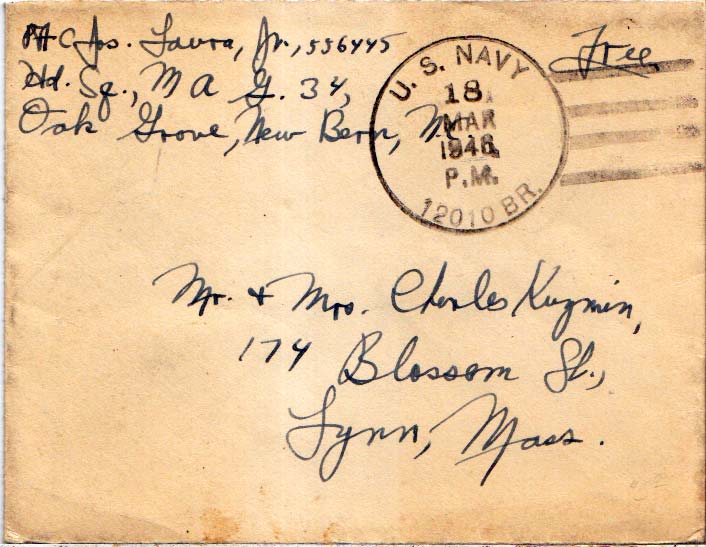 Pfc Jos. Laura, Jr., 556445
Hd. Sq., M A G. 34,
Oak Grove, New Bern, N.C.
Free
U. S. NAVY
18
MAR
1946
P.M.
12010 BR.
Mr. & Mrs. Charles Kuzmin,
174 Blossom St.,
Lynn, Mass.